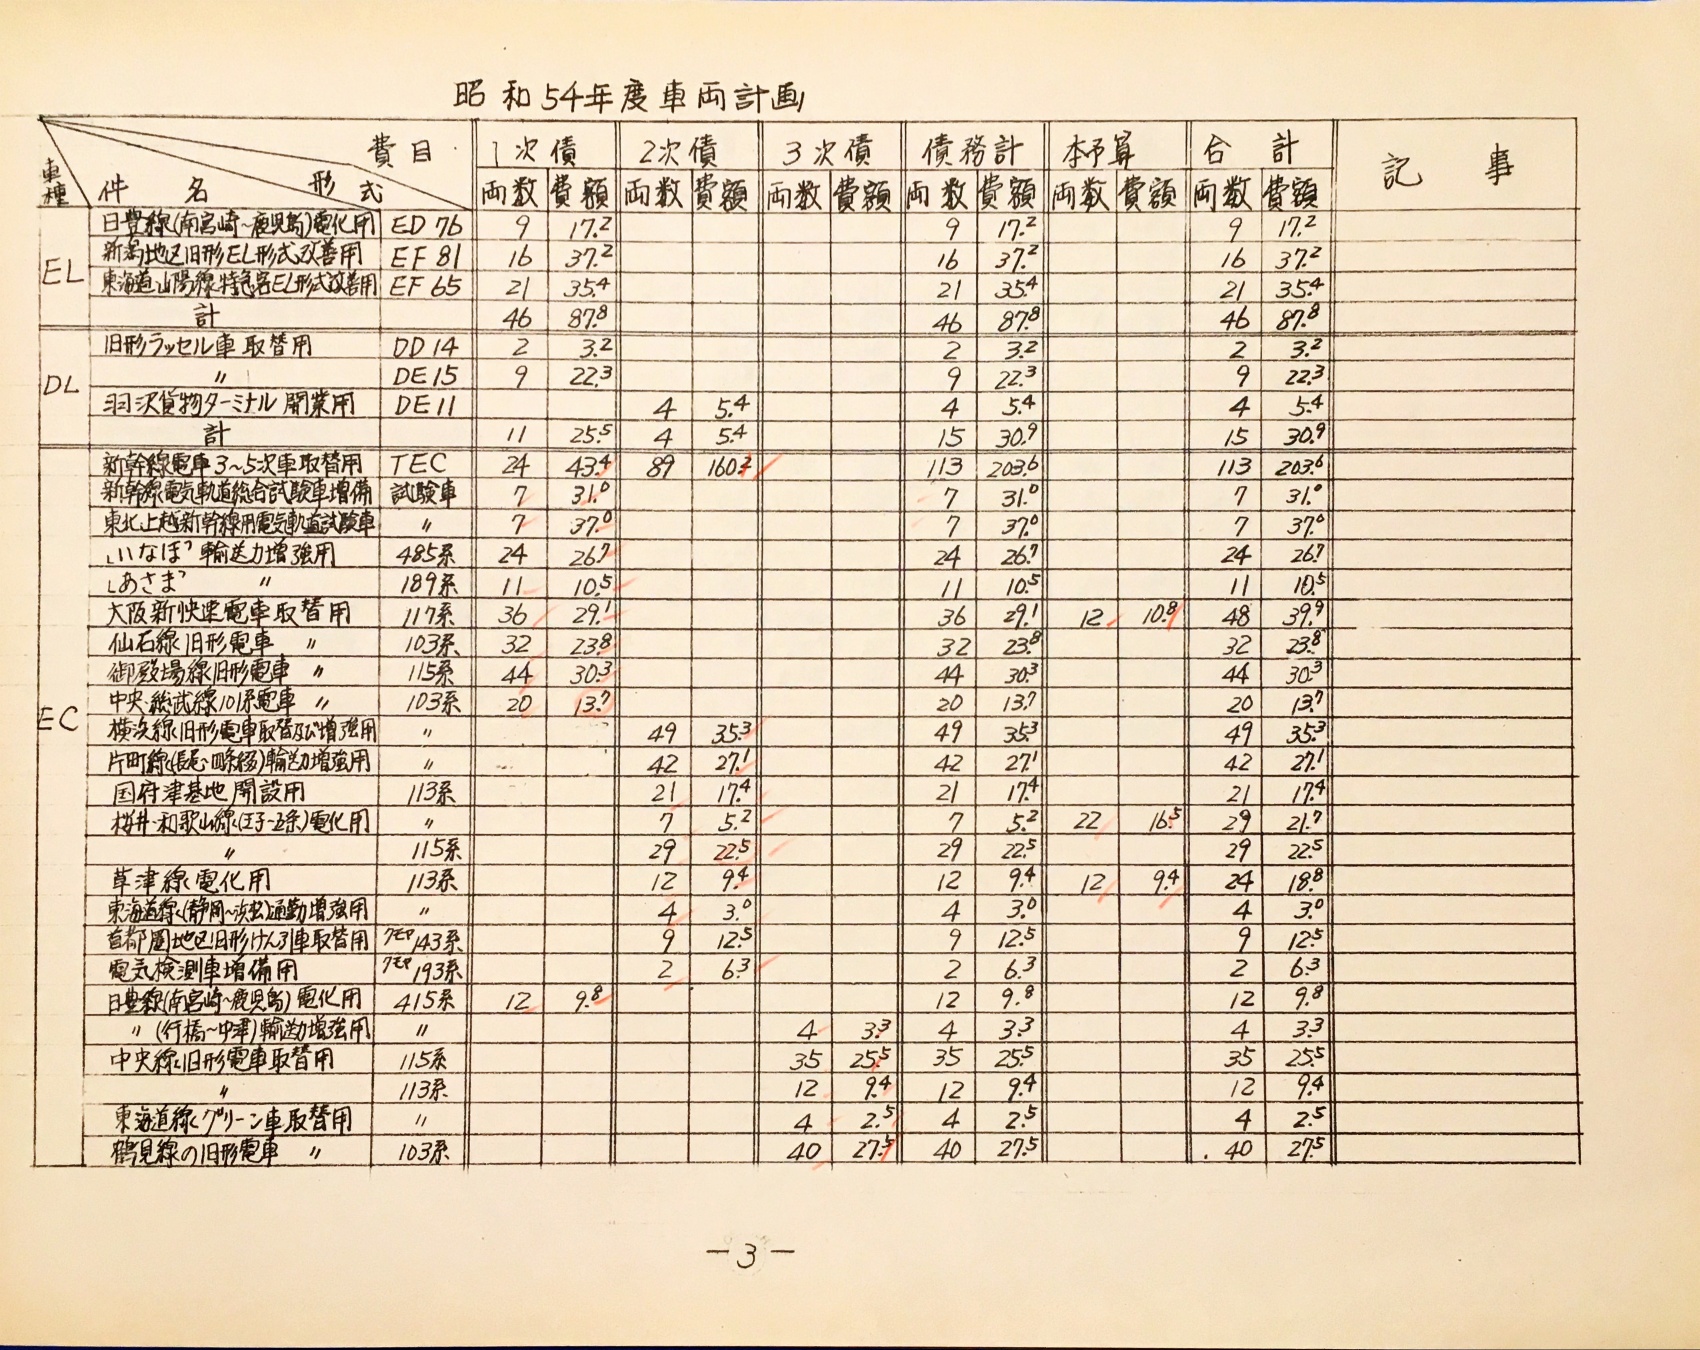 昭和54年度車両計画
車種 件名 形式 費目 1次債 2次債 3次債 債務計 本予算 合計 記事
両数 費額 両数 費額 両数 費額 両数 費額 両数 費額 両数 費額
EL
日豊線(南宮崎~鹿児島)電化用 ED76 9 17.2 9 17.2 9 17.2
新潟地区旧形EL形式改善用 EF81 16 37.2 16 37.2 16 37.2
東海道山陽線特急客EL形式改善用 EF65 21 35.4 21 35.4 21 35.4
計 46 87.8 46 87.8 46 87.8
DL
旧形ラッセル車取替用 DD14 2 3.2 2 3.2 2 3.2
〃 DE15 9 22.3 9 22.3 9 22.3
羽沢貨物ターミナル開業用 DE11 4 5.4 4 5.4 4 5.4
計 11 25.5 4 5.4 15 30.9 15 30.9
EC
新幹線電車3~5次車取替用 TEC 24 43.4 89 160.2 113 203.6 113 203.6
新幹線電気軌道総合試験車増備 試験車 7 31.0 7 31.0 7 31.0
東北上越新幹線用電気軌道試験車 〃 7 37.0 7 37.0 7 37.0
「いなほ」輸送力増強用 485系 24 26.7 24 26.7 24 26.7
「あさま」 〃 189系 11 10.5 11 10.5 11 10.5
大阪新快速電車取替用 117系 36 29.1 36 29.1 12 10.8 48 39.9
仙石線旧形電車 〃 103系 32 23.8 32 23.8 32 23.8
御殿場線旧形電車 〃 115系 44 30.3 44 30.3 44 30.3
中央・総武線101系電車 〃 103系 20 13.7 20 13.7 20 13.7
横浜線旧形電車取替及び増強用 〃 49 35.3 49 35.3 49 35.3
片町線(長尾~四条畷)輸送力増強用 〃 42 27.1 42 27.1 42 27.1
国府津基地開設用 113系 21 17.4 21 17.4 21 17.4
桜井・和歌山線(王子~五条)電化用 〃 7 5.2 7 5.2 22 16.5 29 21.7
〃 115系 29 22.5 29 22.5 29 22.5
草津線電化用 113系 12 9.4 12 9.4 12 9.4 24 18.8
東海道線(静岡~浜松)通勤増強用 〃 4 3.0 4 3.0 4 3.0
首都圏地区旧形けん引車取替用 クモヤ143系 9 12.5 9 12.5 9 12.5
電気検測車増備用 クモヤ193系 2 6.3 2 6.3 2 6.3
日豊線(南宮崎~鹿児島)電化用 415系 12 9.8 12 9.8 12 9.8
〃 (行橋~中津)輸送力増強用 〃 4 3.3 4 3.3 4 3.3
中央線旧形電車取替用 115系 35 25.5 35 25.5 35 25.5
〃 113系 12 9.4 12 9.4 12 9.4
東海道線グリーン車取替用 〃 4 2.5 4 2.5 4 2.5
鶴見線の旧形電車 〃 103系 40 27.5 40 27.5 40 27.5
-3-